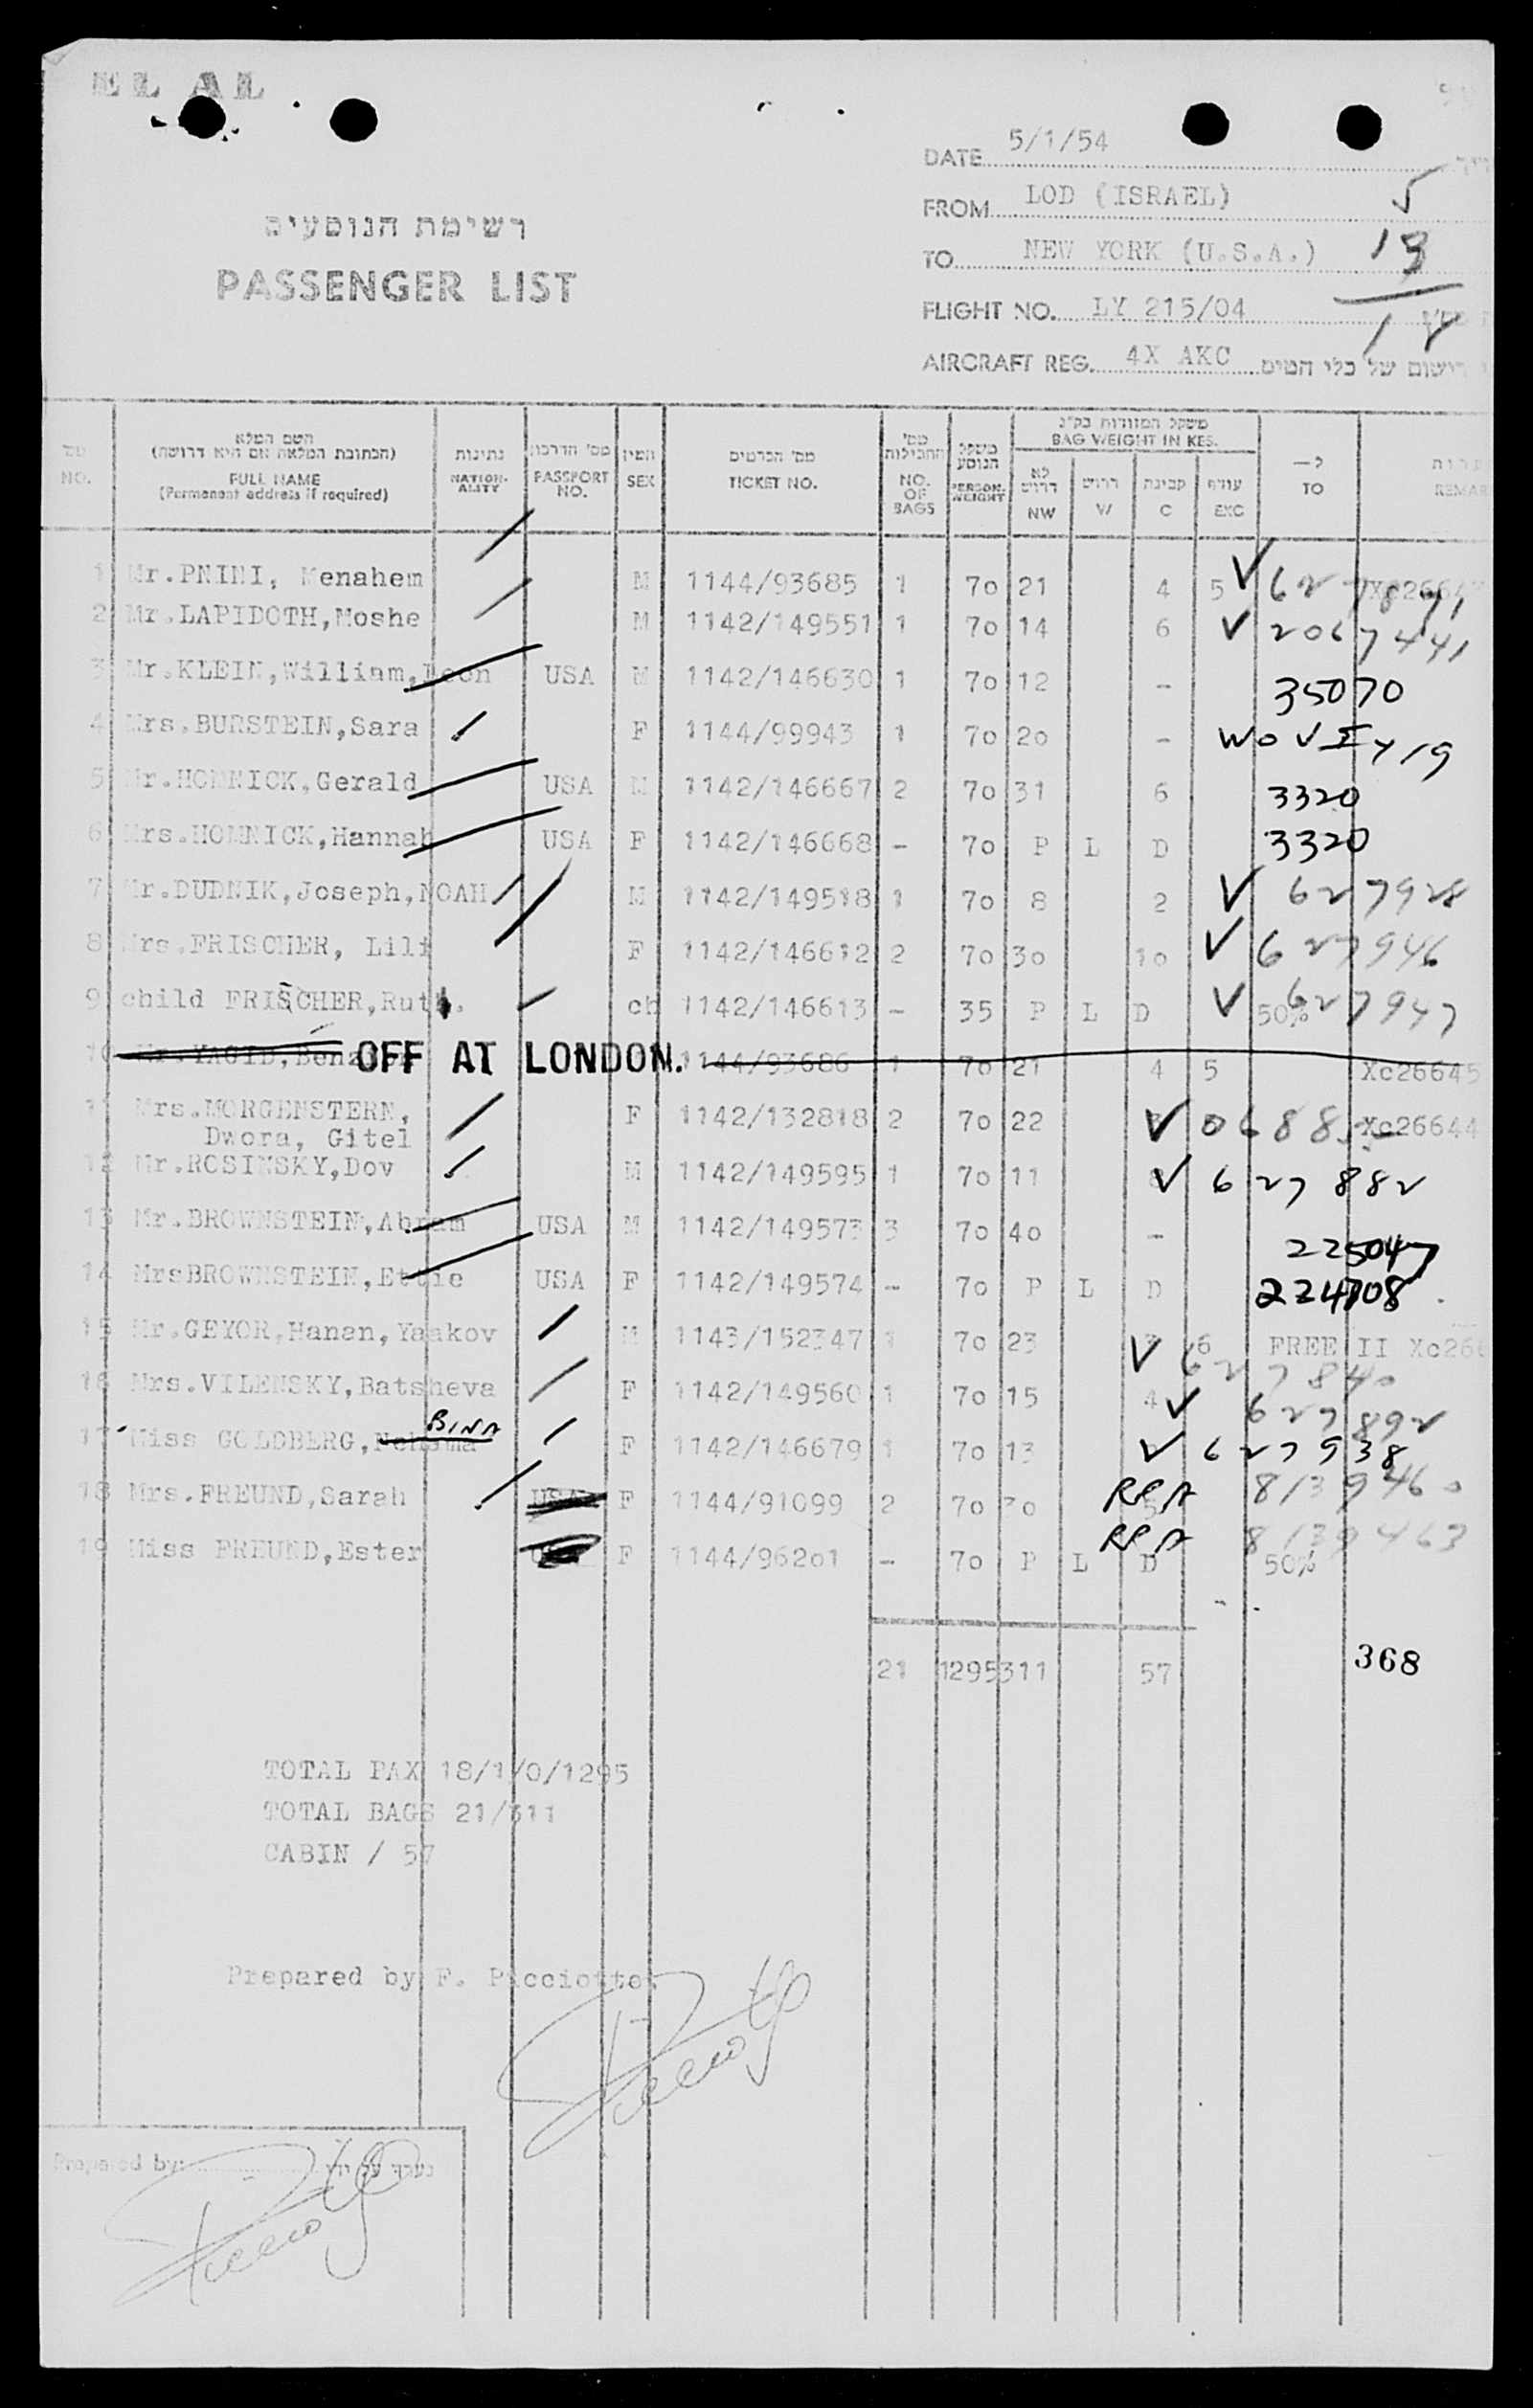 EL AL
DATE 5/1/54
FROM LOD (ISRAEL) 5
TO NEW YORK (U.S.A.) 13
FLIGHT NO. LY 215/04 18
AIRCRAFT REG. 4X AKC רישום של כלי הטיס
רשימת הנוסעים
PASSENGER LIST
מס' NO.
השם המלא (הכתובת המלאה אם היא דרושה) FULL NAME (Permanent address if required)
נתינות NATION-ALITY
מס' הדרכון PASSPORT NO.
המין SEX
מס' הכרטיס TICKET NO.
מס' החבילות NO. OF BAGS
משקל הנוסע PERSON. WEIGHT
משקל המזוודות בק"ג BAG WEIGHT IN KES.
לא דרוש NW
דרוש W
קבינה C
עודף EXC
ל— TO
REMAR
1 Mr.PNINI, Menahem M 1144/93685 1 70 21 4 5 V 627871
2 Mr.LAPIDOTH,Moshe M 1142/149551 1 70 14 6 V 2067441
3 Mr.KLEIN,William,Leon USA M 1142/146630 1 70 12 - 35070
4 Mrs.BURSTEIN,Sara F 1144/99943 1 70 20 -
5 Mr.HOMNICK,Gerald USA M 1142/146667 2 70 31 6 3320
6 Mrs.HOMNICK,Hannah USA F 1142/146668 - 70 P L D 3320
7 Mr.DUDNIK,Joseph,NOAH M 1142/149518 1 70 8 2 V 627928
8 Mrs.FRISCHER, Lili F 1142/146612 2 70 30 10 V 627946
9 child FRISCHER,Ruth. ch 1142/146613 - 35 P L D V 50% 627947
10 OFF AT LONDON. 1144/93686 1 70 21 4 5 Xc26645
11 Mrs.MORGENSTERN, F 1142/132818 2 70 22 V Xc26644
Dwora, Gitel
12 Mr.ROSINSKY,Dov M 1142/149595 1 70 11 V 627882
13 Mr.BROWNSTEIN,Abram USA M 1142/149573 3 70 40 - 225047
14 MrsBROWNSTEIN,Ettie USA F 1142/149574 - 70 P L D 224708
15 Mr.GEYOR,Hanan,Yaakov M 1143/152347 1 70 23 V 6 FREE II Xc266
627840
16 Mrs.VILENSKY,Batsheva F 1142/149560 1 70 15 4 V 627892
BINA
17 Miss GOLDBERG, F 1142/146679 1 70 13 V 627938
18 Mrs.FREUND,Sarah USA F 1144/91099 2 70 30 5 RPA 8139460
19 Miss FREUND,Ester F 1144/96201 - 70 P L D RPA 8139463 50%
21 1295 311 57 368
TOTAL PAX 18/1/0/1295
TOTAL BAGS 21/311
CABIN / 57
Prepared by F. Picciotto.
Prepared by: נערך על ידי